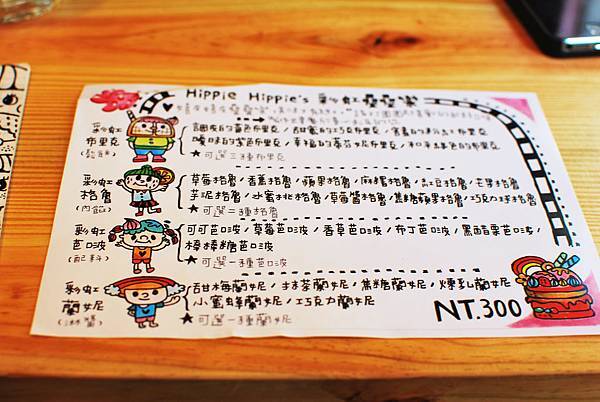 Hippie Hippie's 彩虹疊疊樂
彩虹
布里克
(鬆餅)
調皮的黃色布里克/甜蜜的巧克布里克/
曖昧的紫色布里克/幸福的
★可選三種布里克
彩虹
格魯
(內餡)
草莓格魯/香蕉格魯/蘋果格魯/麻糬格魯/紅豆格魯/芒果格魯/
芋泥格魯/水蜜桃格魯/草莓醬格魯/焦糖蘋果格魯/巧克力球格魯
★可選二種格魯
彩虹
芭比波
(配料)
可可芭比波/草莓芭比波/香草芭比波/布丁芭比波/黑醋栗芭比波/
棒棒糖芭比波
★可選一種芭比波
彩虹
蘭妮
(淋醬)
甜梅蘭妮/抹茶蘭妮/焦糖蘭妮/煉乳蘭妮
小蜜蜂蘭妮/巧克力蘭妮
★可選一種蘭妮
NT.300